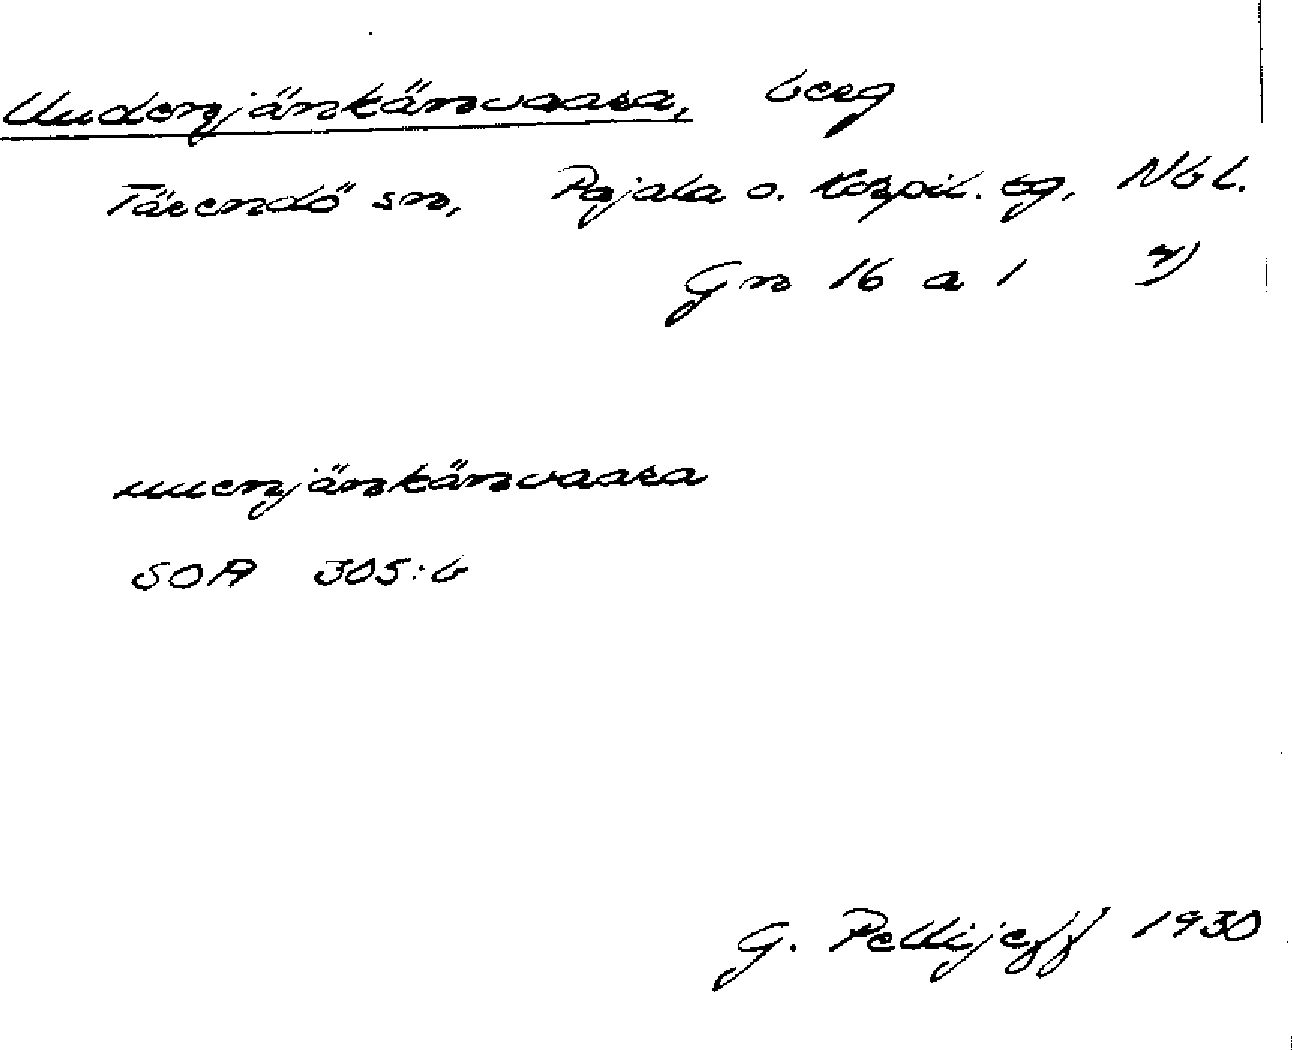 Uudenjänkänvaara, berg
Tärendö sn, Pajala o. Korpil. tg, Nbl.
Gn 16 a 1
uuenjänkänvaara
SOA 305:6
G. Pellijeff 1930